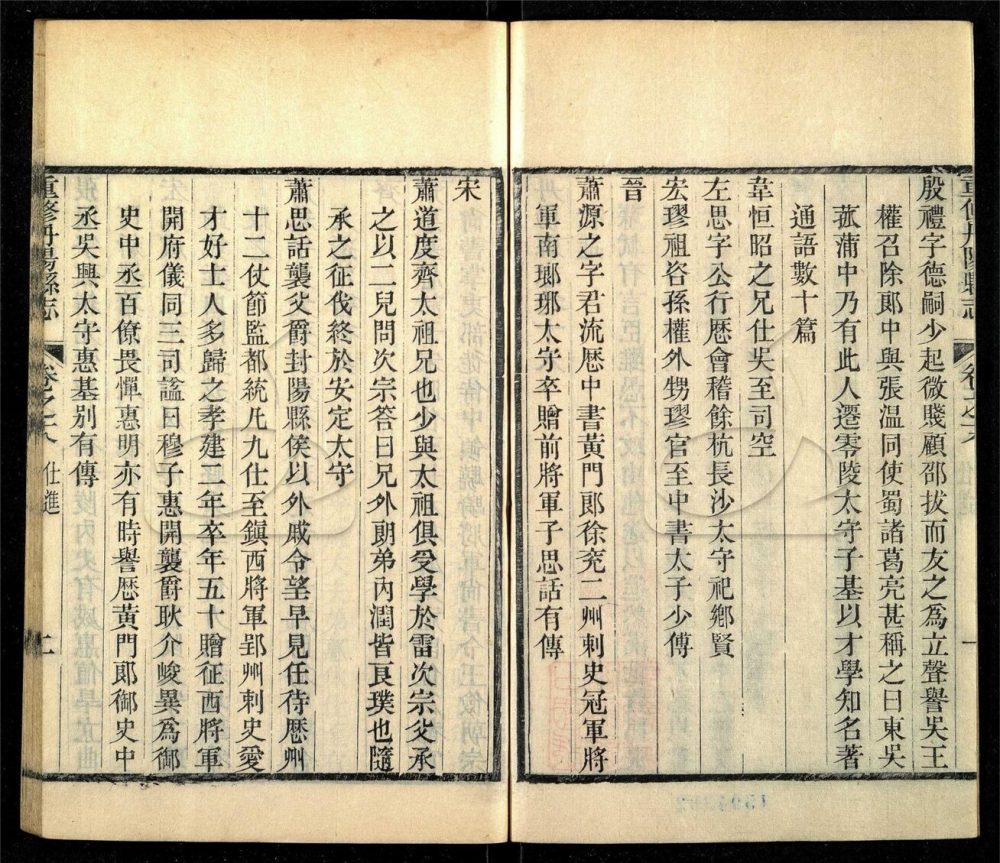 重修丹陽縣志
卷之十八
一
殷禮字德嗣少起微賤顧邵拔而友之爲立聲譽吴王
權召除郞中與張温同使蜀諸葛亮甚稱之曰東吴
菰蒲中乃有此人遷零陵太守子基以才學知名著
通語數十篇
韋恒昭之兄仕吴至司空
左思字公行歴會稽餘杭長沙太守祀鄉賢
宏璆祖咨孫權外甥璆官至中書太子少傅
晉
蕭源之字君流歴中書黃門郞徐兖二州刺史冠軍將
軍南瑯琊太守卒贈前將軍子思話有傳
宋
蕭道度齊太祖兄也少與太祖俱受學於雷次宗父承
之以二兒問次宗答曰兄外朗弟內潤皆良璞也隨
承之征伐終於安定太守
蕭思話襲父爵封陽縣侯以外戚令望早見任待歴州
十二仗節監都統凡九仕至鎭西將軍郢州刺史愛
才好士人多歸之孝建二年卒年五十贈征西將軍
開府儀同三司諡曰穆子惠開襲爵耿介峻異爲御
史中丞百僚畏憚惠明亦有時譽歴黃門郞御史中
丞吴興太守惠基别有傳
重修丹陽縣志
仕進
二